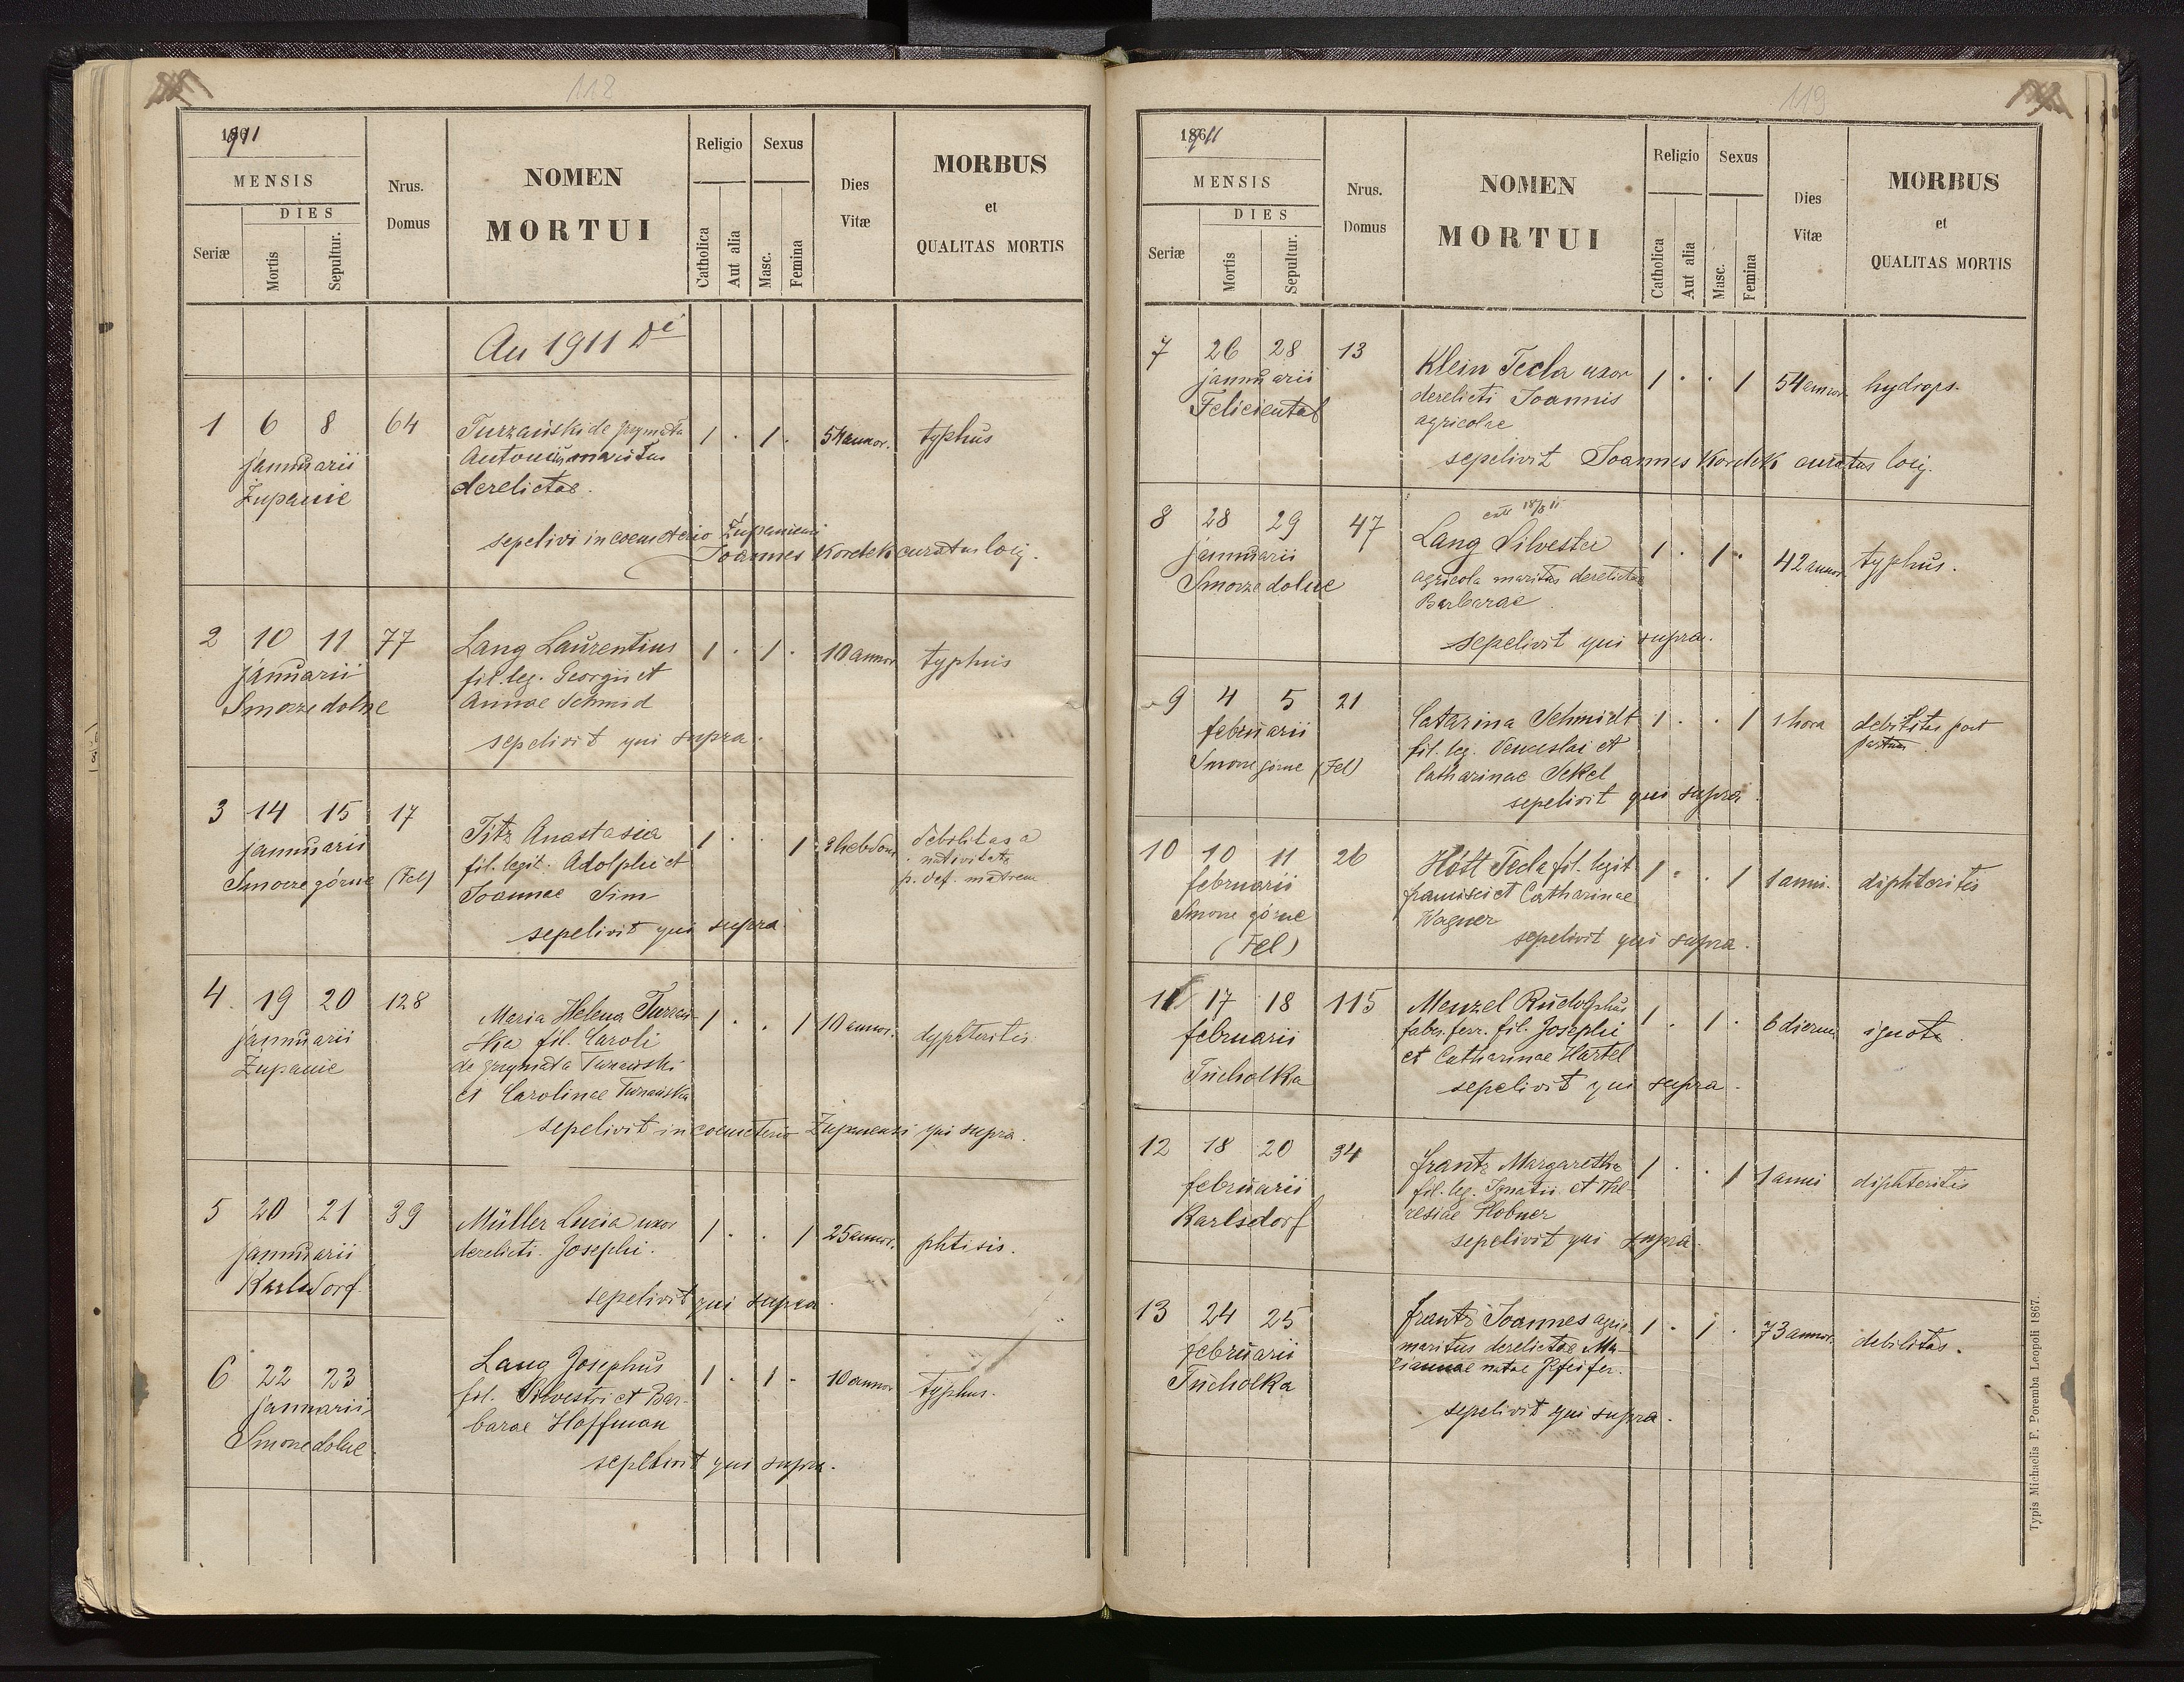 118
1911
MENSIS
DIES
Seriæ
Mortis
Sepultur.
Nrus.
Domus
NOMEN
MORTUI
Religio
Catholica
Aut alia
Sexus
Masc.
Femina
Dies
Vitæ
MORBUS
et
QUALITAS MORTIS
An 1911 Di
1 6 8 64 Turzański de grymata 1 . 1 . 54 annor. typhus
januarii Antonius maritus
Żupanie derelictae.
sepelivi in coemeterio Żupaniensi
Joannes Kordek curatus loci.
2 10 11 77 Lang Laurentius 1 . 1 . 10 annor typhus
januarii fil. leg. Georgii et
Smorze dolne Annae Schmid
sepelivit qui supra.
3 14 15 17 Titz Anastasia 1 . . 1 3 hebdom debilitas a
januarii fil. legit. Adolphi et nativitate
Smorze górne (Fel) Joannae Sim p. def. matrem
sepelivit qui supra
4. 19 20 128 Maria Helena Turzań- 1 . . 1 10 annor. dyphteritis
januarii ska fil. Caroli
Żupanie de grymata Turzański
et Carolinae Turzańska
sepelivit in coemeterio Żupaniensi qui supra.
5 20 21 39 Müller Lucia uxor 1 . . 1 25 annor. phtisis.
januarii derelicti Josephi.
Karlsdorf
sepelivit qui supra.
6 22 23 Lang Josephus 1 . 1 . 10 annor typhus.
januarii fil. Silvestri et Bar-
Smorze dolne barae Hoffman
sepelivit qui supra.
119
1911
MENSIS
DIES
Seriæ
Mortis
Sepultur.
Nrus.
Domus
NOMEN
MORTUI
Religio
Catholica
Aut alia
Sexus
Masc.
Femina
Dies
Vitæ
MORBUS
et
QUALITAS MORTIS
7 26 28 13 Klein Tecla uxor 1 . . 1 54 annor hydrops.
januarii derelicti Joannis
Felicientab agricolae
sepelivit Joannes Kordek curatus loci.
8 28 29 47 Lang Silvester 1 . 1 . 42 annor typhus.
januarii agricola maritus derelictae
Smorze dolne Barbarae.
sepelivit qui supra.
9 4 5 21 Catarina Schmidt 1 . . 1 1 hora debilitas post
februarii fil. leg. Venceslai et partum
Smorze górne (Fel) Catharinae Sekel
sepelivit qui supra.
10 10 11 26 Hött Tecla fil. legit 1 . . 1 1 anni. diphteritis
februarii francisci et Catharinae
Smorze górne Wagner
(Fel) sepelivit qui supra.
11 17 18 115 Menzel Rudolphus 1 . 1 . 6 dierum ignota.
februarii faber. ferr. fil. Josephi
Tucholka et Catharinae Hartel
sepelivit qui supra.
12 18 20 34 frantz Margaretha 1 . . 1 1 anni diphteritis
februarii fil. leg. Ignatii et The-
Karlsdorf resiae Hobner
sepelivit qui supra.
13 24 25 frantz Joannes agric. 1 . 1 . 73 annor. debilitas.
februarii maritus derelictae Ma-
Tucholka riannae natae Pfeifer.
sepelivit qui supra.
Typis Michaelis F. Poremba Leopoli 1867.